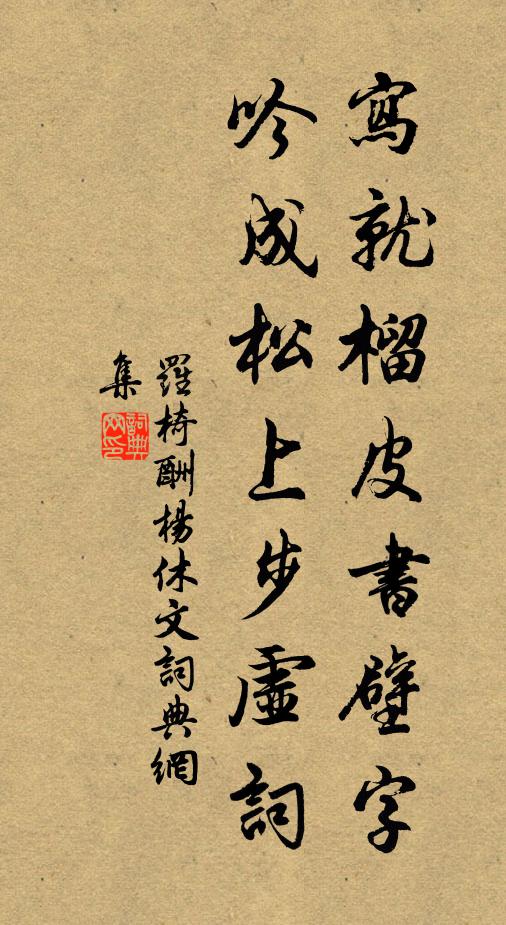 寫就榴皮書壁字
吟成松上步虛詞
羅椅酬楊休文詞典網
集
詞典
網印